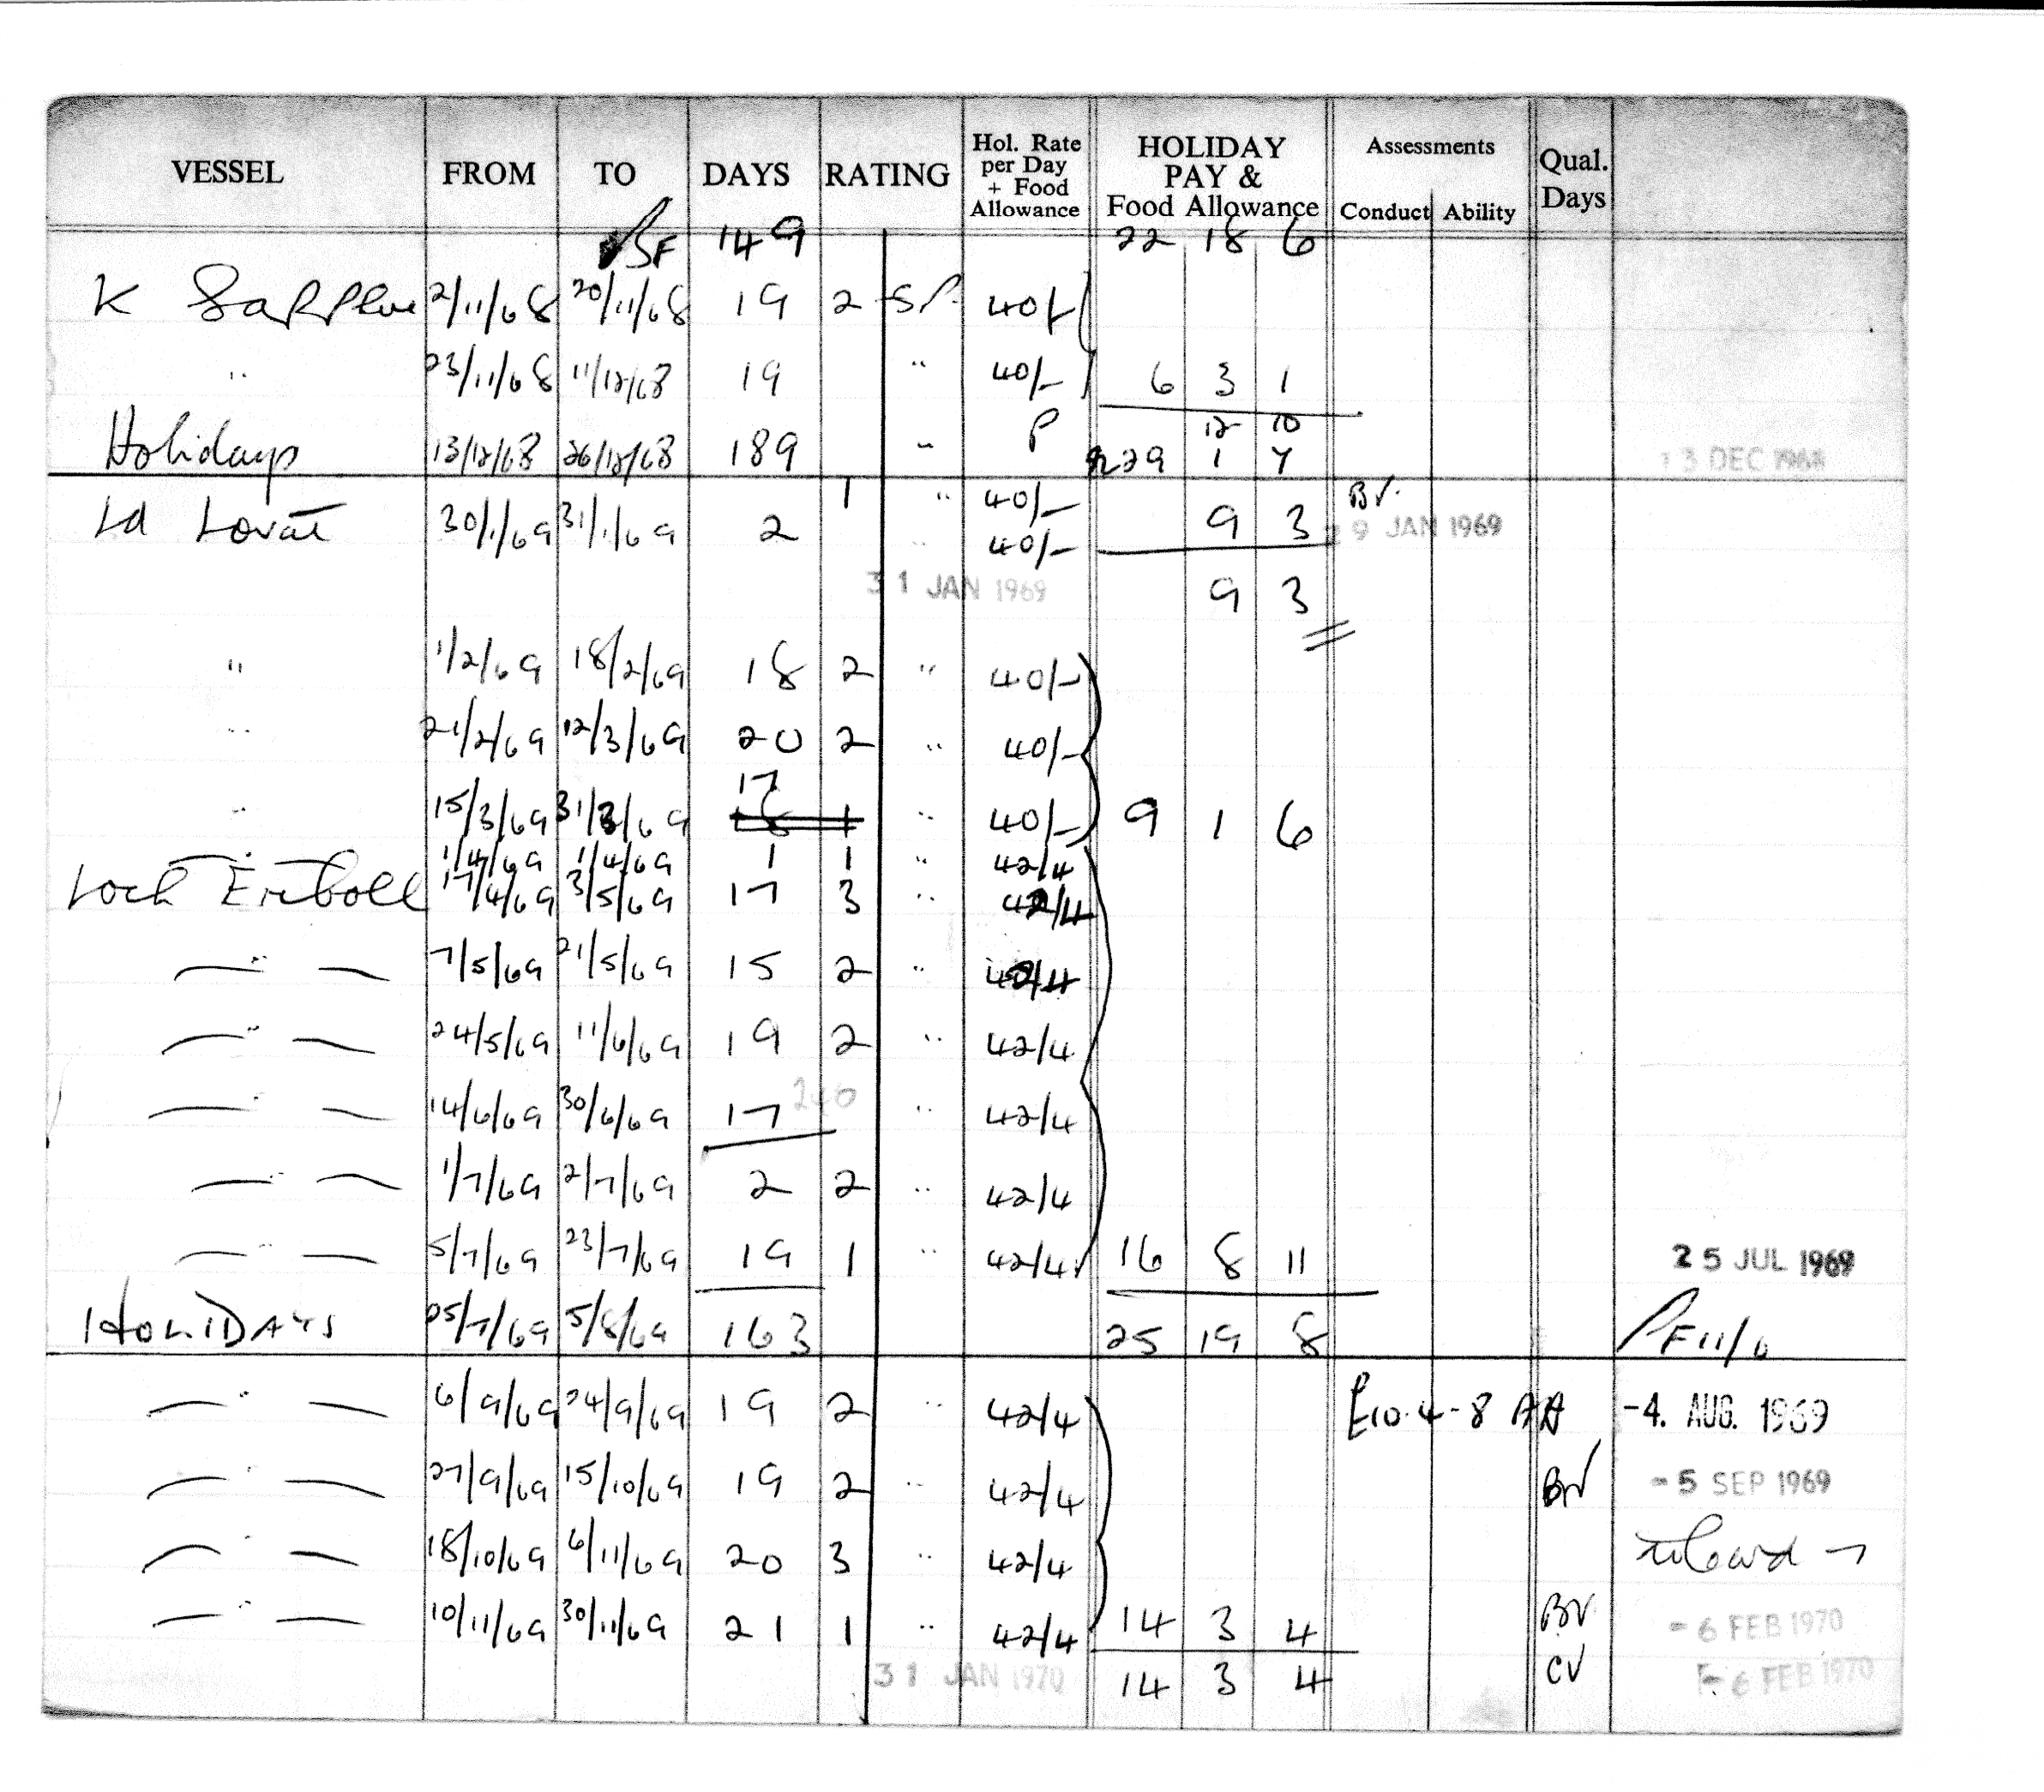 VESSEL FROM TO DAYS RATING Hol. Rate per Day + Food Allowance HOLIDAY PAY & Food Allowance Assessments Conduct Ability Qual. Days
BF 149 22 18 6
K Sapphire 2/11/68 20/11/68 19 2 SP. 40/-
" 23/11/68 11/12/68 19 " 40/- 6 3 1
12 10
Holidays 13/12/68 26/12/68 189 " P 29 1 7 13 DEC 1968
Ld Lovat 30/1/69 31/1/69 2 1 " 40/- 9 3 BV. 29 JAN 1969
" 40/-
31 JAN 1969 9 3
" 1/2/69 18/2/69 18 2 " 40/-
" 21/2/69 12/3/69 20 2 " 40/-
" 15/3/69 31/3/69 17 1 " 40/- 9 1 6
— " — 1/4/69 1/4/69 1 1 " 42/4
Loch Eriboll 17/4/69 3/5/69 17 3 " 42/4
— " — 7/5/69 21/5/69 15 2 " 42/4
— " — 24/5/69 11/6/69 19 2 " 42/4
— " — 14/6/69 30/6/69 17 240 " 42/4
— " — 1/7/69 2/7/69 2 2 " 42/4
— " — 5/7/69 23/7/69 19 1 " 42/4 16 8 11 25 JUL 1969
HOLIDAYS 25/7/69 5/8/69 163 25 19 8 PF11/6
— " — 6/9/69 24/9/69 19 2 " 42/4 £10.4-8 AA -4. AUG. 1969
— " — 27/9/69 15/10/69 19 2 " 42/4 BV -5 SEP 1969
— " — 18/10/69 6/11/69 20 3 " 42/4
— " — 10/11/69 30/11/69 21 1 " 42/4 14 3 4 BV -6 FEB 1970
31 JAN 1970 14 3 4 CV -6 FEB 1970